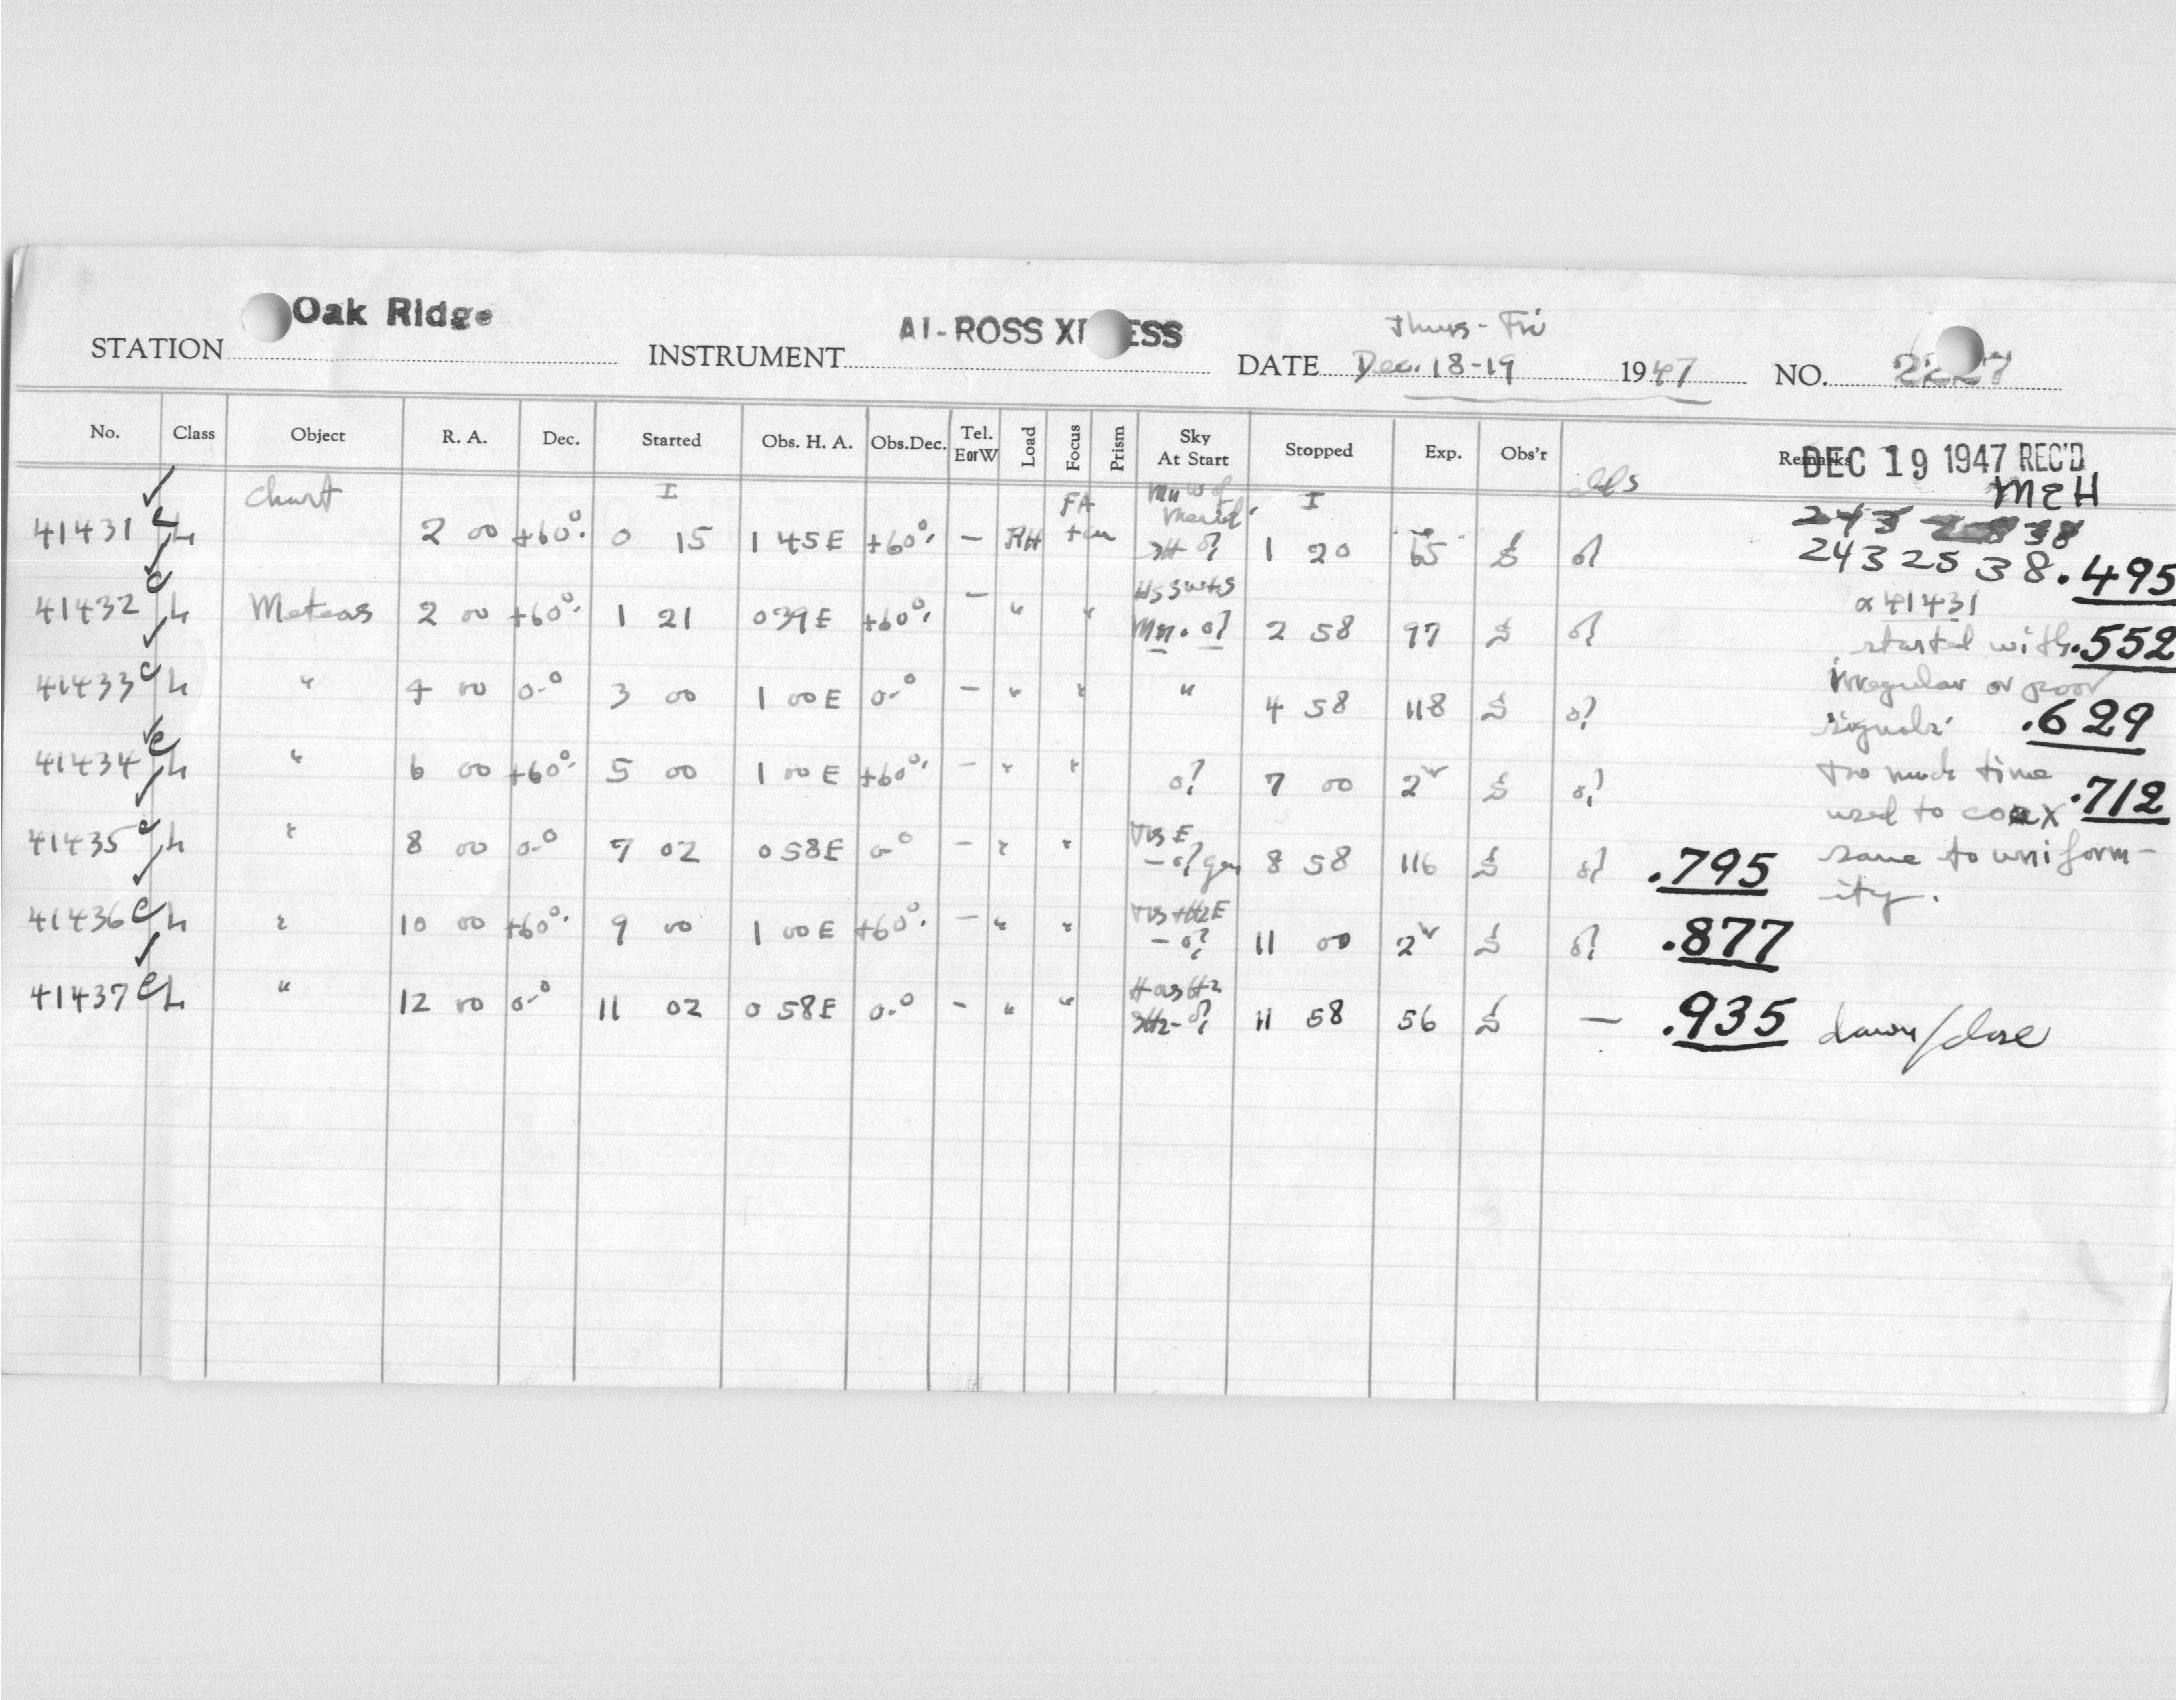 Oak Ridge
AI-ROSS X ESS
Thurs-Fri
STATION INSTRUMENT DATE Dec. 18-19 1947 NO.
No. Class Object R. A. Dec. Started Obs. H. A. Obs.Dec. Tel. EorW Load Focus Prism Sky At Start Stopped Exp. Obs'r Remarks
DEC 19 1947 REC'D
Chart I FA I
41431 2 00 +60° 0 15 1 45E +60° - RH 1 20 65
2432538.495
41432 Meteors 2 00 +60° 1 21 0 39E +60° - " " 2 58 97
41431
started with .552
41433 " 4 00 0° 3 00 1 00E 0° - " " " 4 58 118
irregular or poor
signals. .629
41434 " 6 00 +60° 5 00 1 00E +60° - " " 7 00
too much time .712
used to coax
41435 " 8 00 0° 7 02 0 58E 0° - " " 8 58 116 .795
same to uniform-
ity.
41436 " 10 00 +60° 9 00 1 00E +60° - " " 11 00 .877
41437 " 12 00 0° 11 02 0 58E 0° - " " 11 58 56 — .935 dawn/close